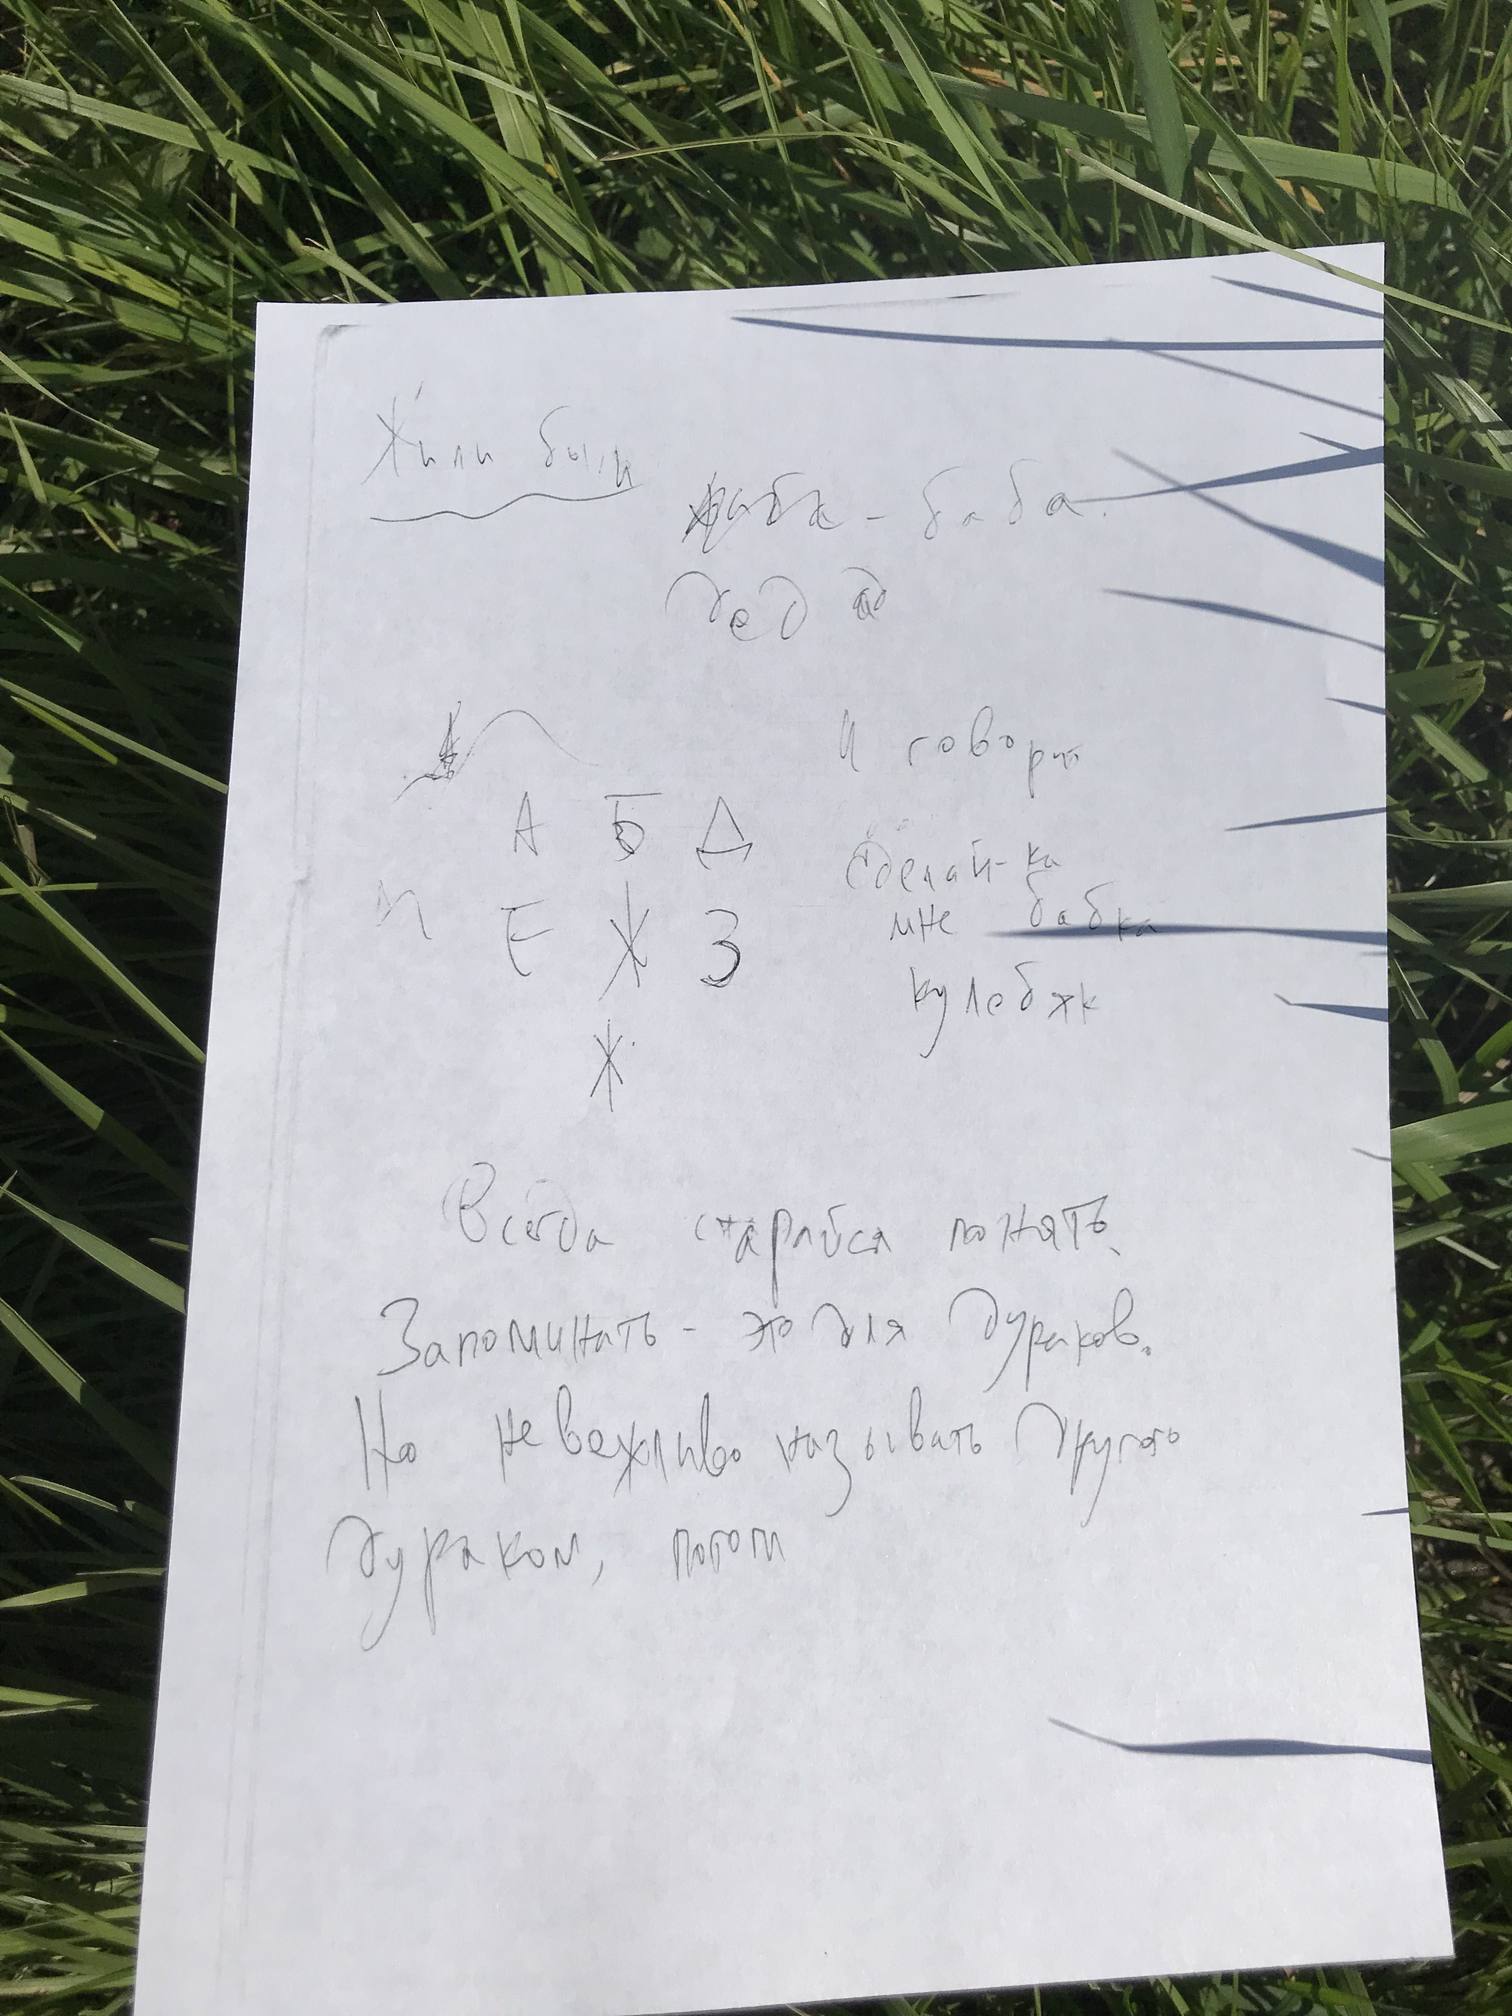 Жили были
- баба.
дед
И говорит
А Б Д
Сделай-ка
мне бабка
Е Ж З
кулебяк
Ж
Всегда старайся понять.
Запоминать - это для дураков.
Но невежливо называть другого
дураком, потом